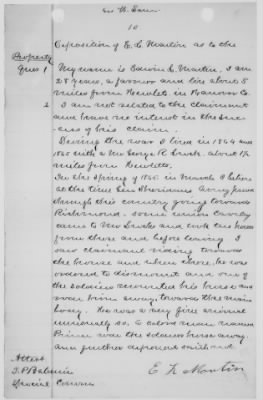 10
Deposition of E. L. Martin as to the
Property
Ques 1 My name is Edwin L. Martin, I am
28 years, a farmer and live about 5
miles from Hewlets, in Hanover Co.
2 I am not related to the claimant
and have no interest in the suc-
cess of his claim.
During the war I lived in 1864 and
1865 with Mr George K. about 1½
miles from Hewletts,
In the Spring of 1865 in March I believe
at the time Gen Sheridans Army passed
through this country going towards
Richmond. some union Cavalry
came to Mr and took ten horses
from there and before leaving I
saw claimant riding towards
the house and when there, he was
ordered to dismount and one of
the soldiers mounted his horse and
rode him away, towards the main
body. he was a very fine animal
unusually so. A colored man named
Prince rode the soldiers horse away.
And further deponent saith not
Attest
E. L. Martin